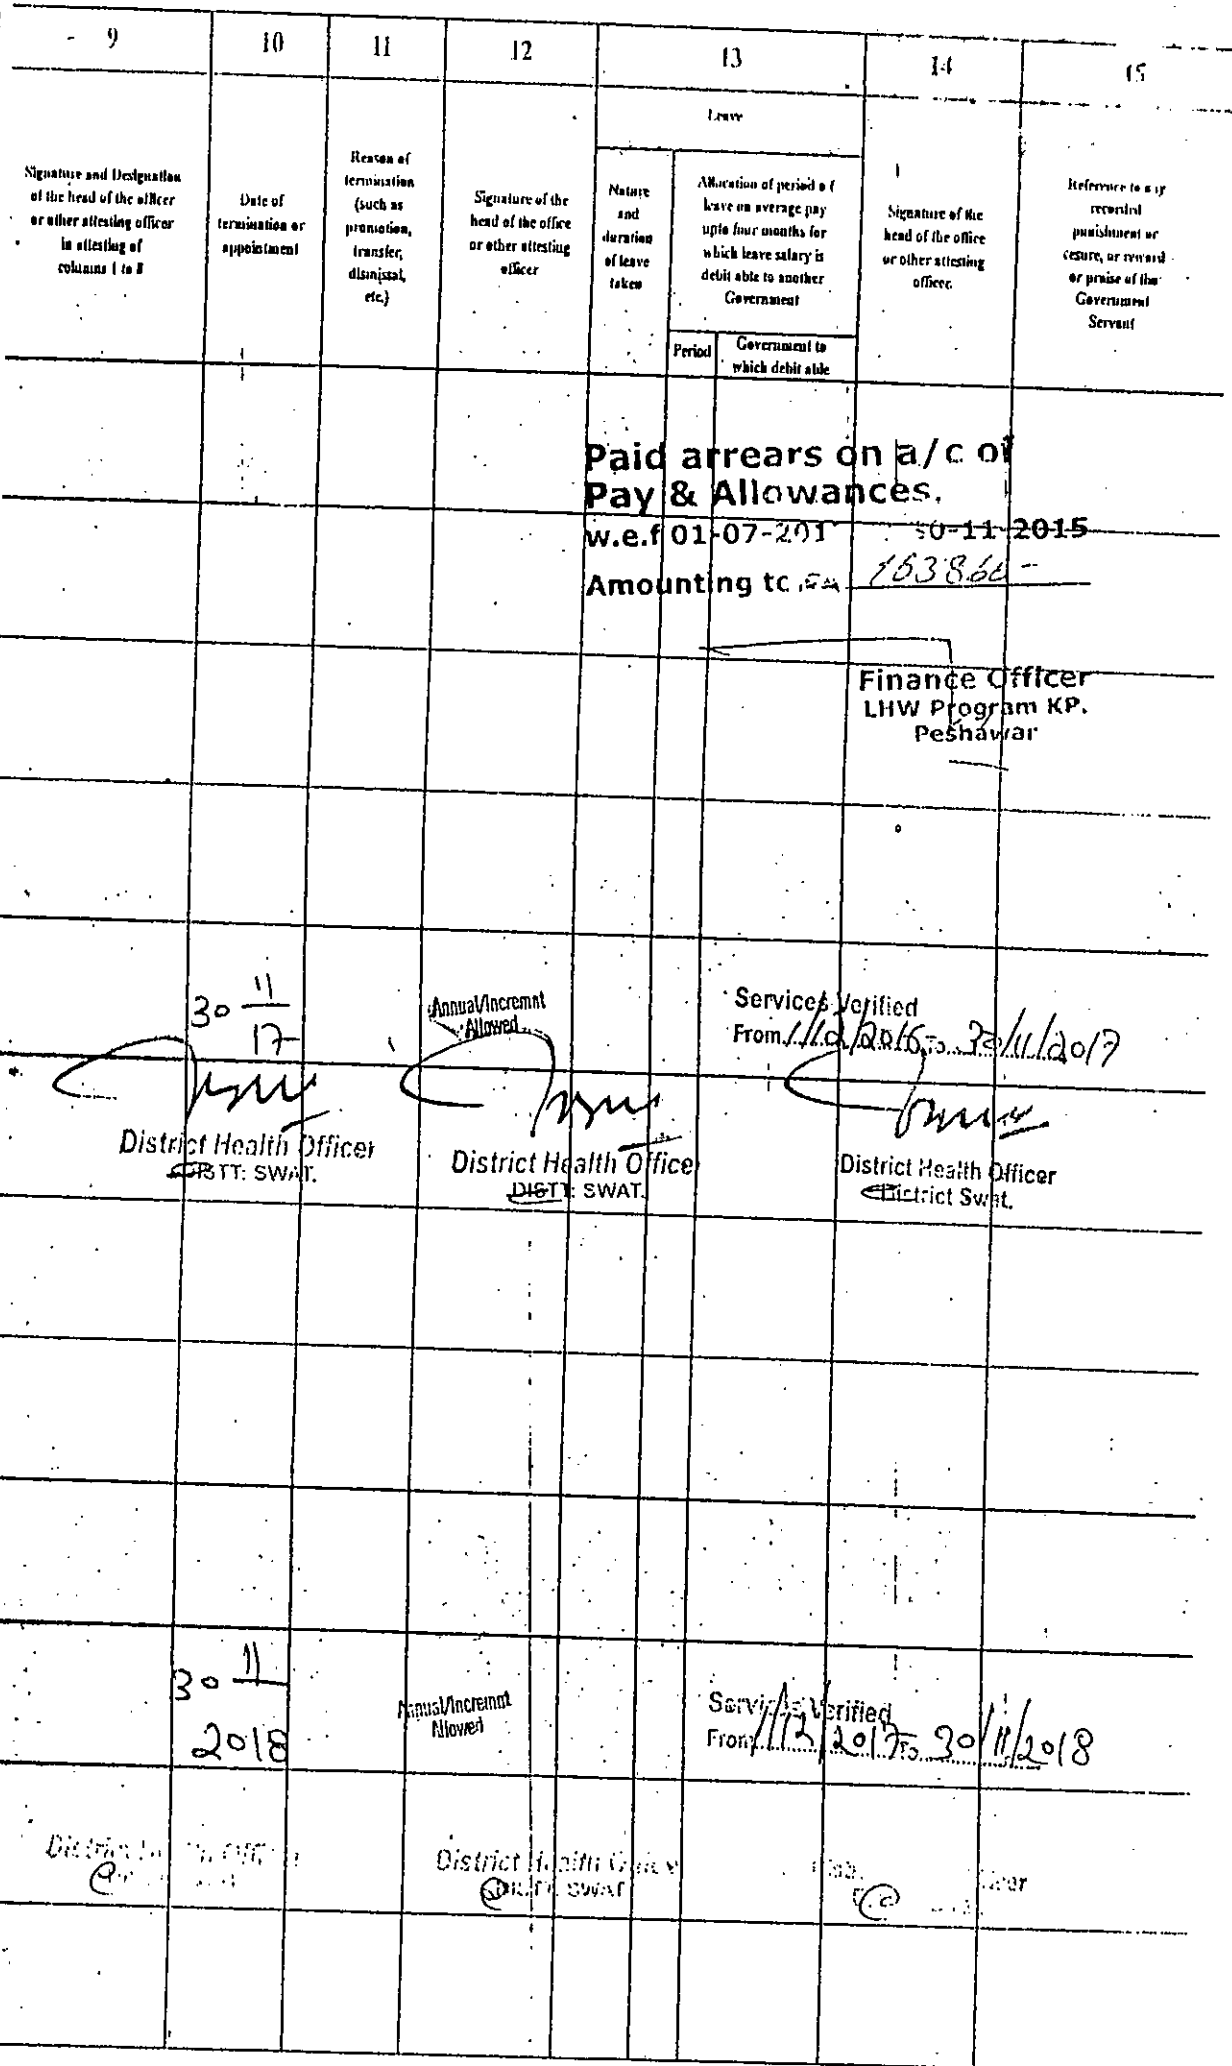 - 9
10
11
12
13
14
15
Signature and Designation
of the head of the officer
or other attesting officer
in attesting of
columns 1 to 8
Date of
termination or
appointment
Reason of
termination
(such as
promotion,
transfer,
dismissal,
etc.)
Signature of the
head of the office
or other attesting
officer
Leave
Nature
and
duration
of leave
taken
Allocation of period of
leave on average pay
upto four months for
which leave salary is
debit able to another
Government
Period
Government to
which debit able
Signature of the
head of the office
or other attesting
officer.
Reference to any
recorded
punishment or
cesure, or reward
or praise of the
Government
Servant
Paid arrears on a/c of
Pay & Allowances.
w.e.f 01-07-201 30-11-2015
Amounting to 163860-
Finance Officer
LHW Program KP.
Peshawar
30 11
17
Annual/Incremnt
Allowed
Services Verified
From 1/12/2016 To 30/11/2017
District Health Officer
DISTT: SWAT.
District Health Office
DISTT: SWAT.
District Health Officer
District Swat.
30 11
2018
Annual/Incremnt
Allowed
Services Verified
From 1/12/2017 To 30/11/2018
District Officer
District Health Office
DISTT: SWAT